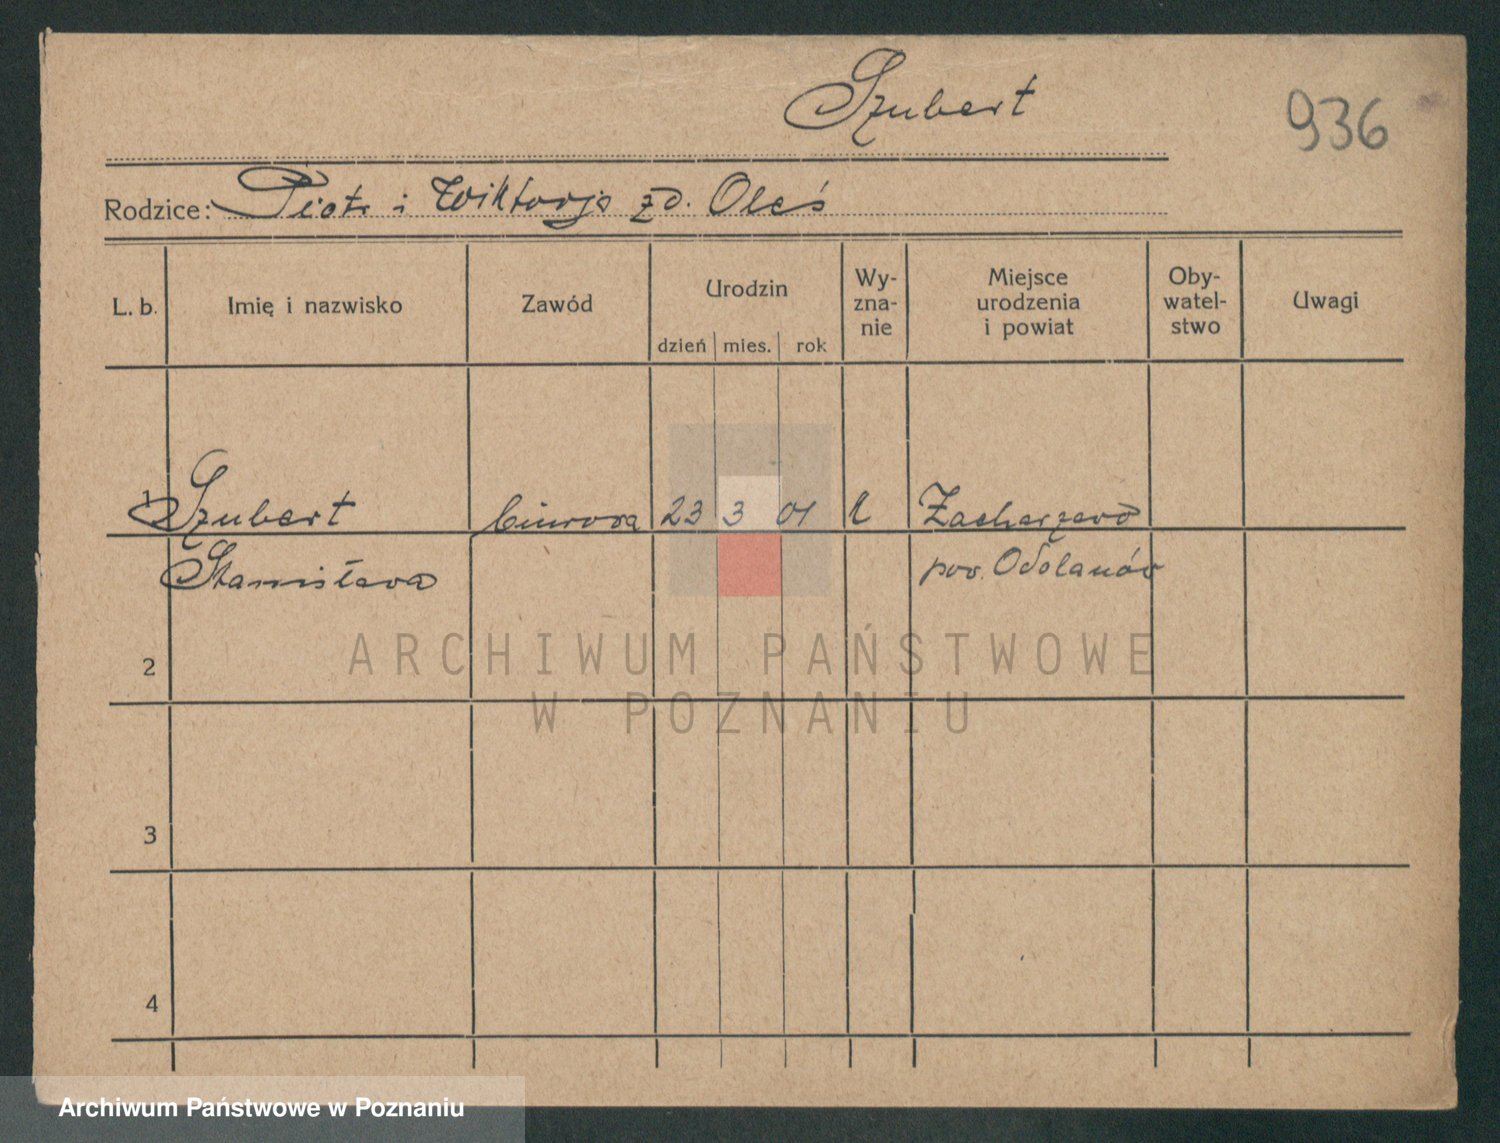 Szubert
936
Rodzice: Piotr i Wiktorja zd. Oleś
L. b.
Imię i nazwisko
Zawód
Urodzin
dzień mies. rok
Wy-
zna-
nie
Miejsce
urodzenia
i powiat
Oby-
watel-
stwo
Uwagi
1 Szubert biurowa 23 3 01 k Zacharzew
Stanisława pow. Odolanów
2
3
4
ARCHIWUM PAŃSTWOWE
W POZNANIU
Archiwum Państwowe w Poznaniu